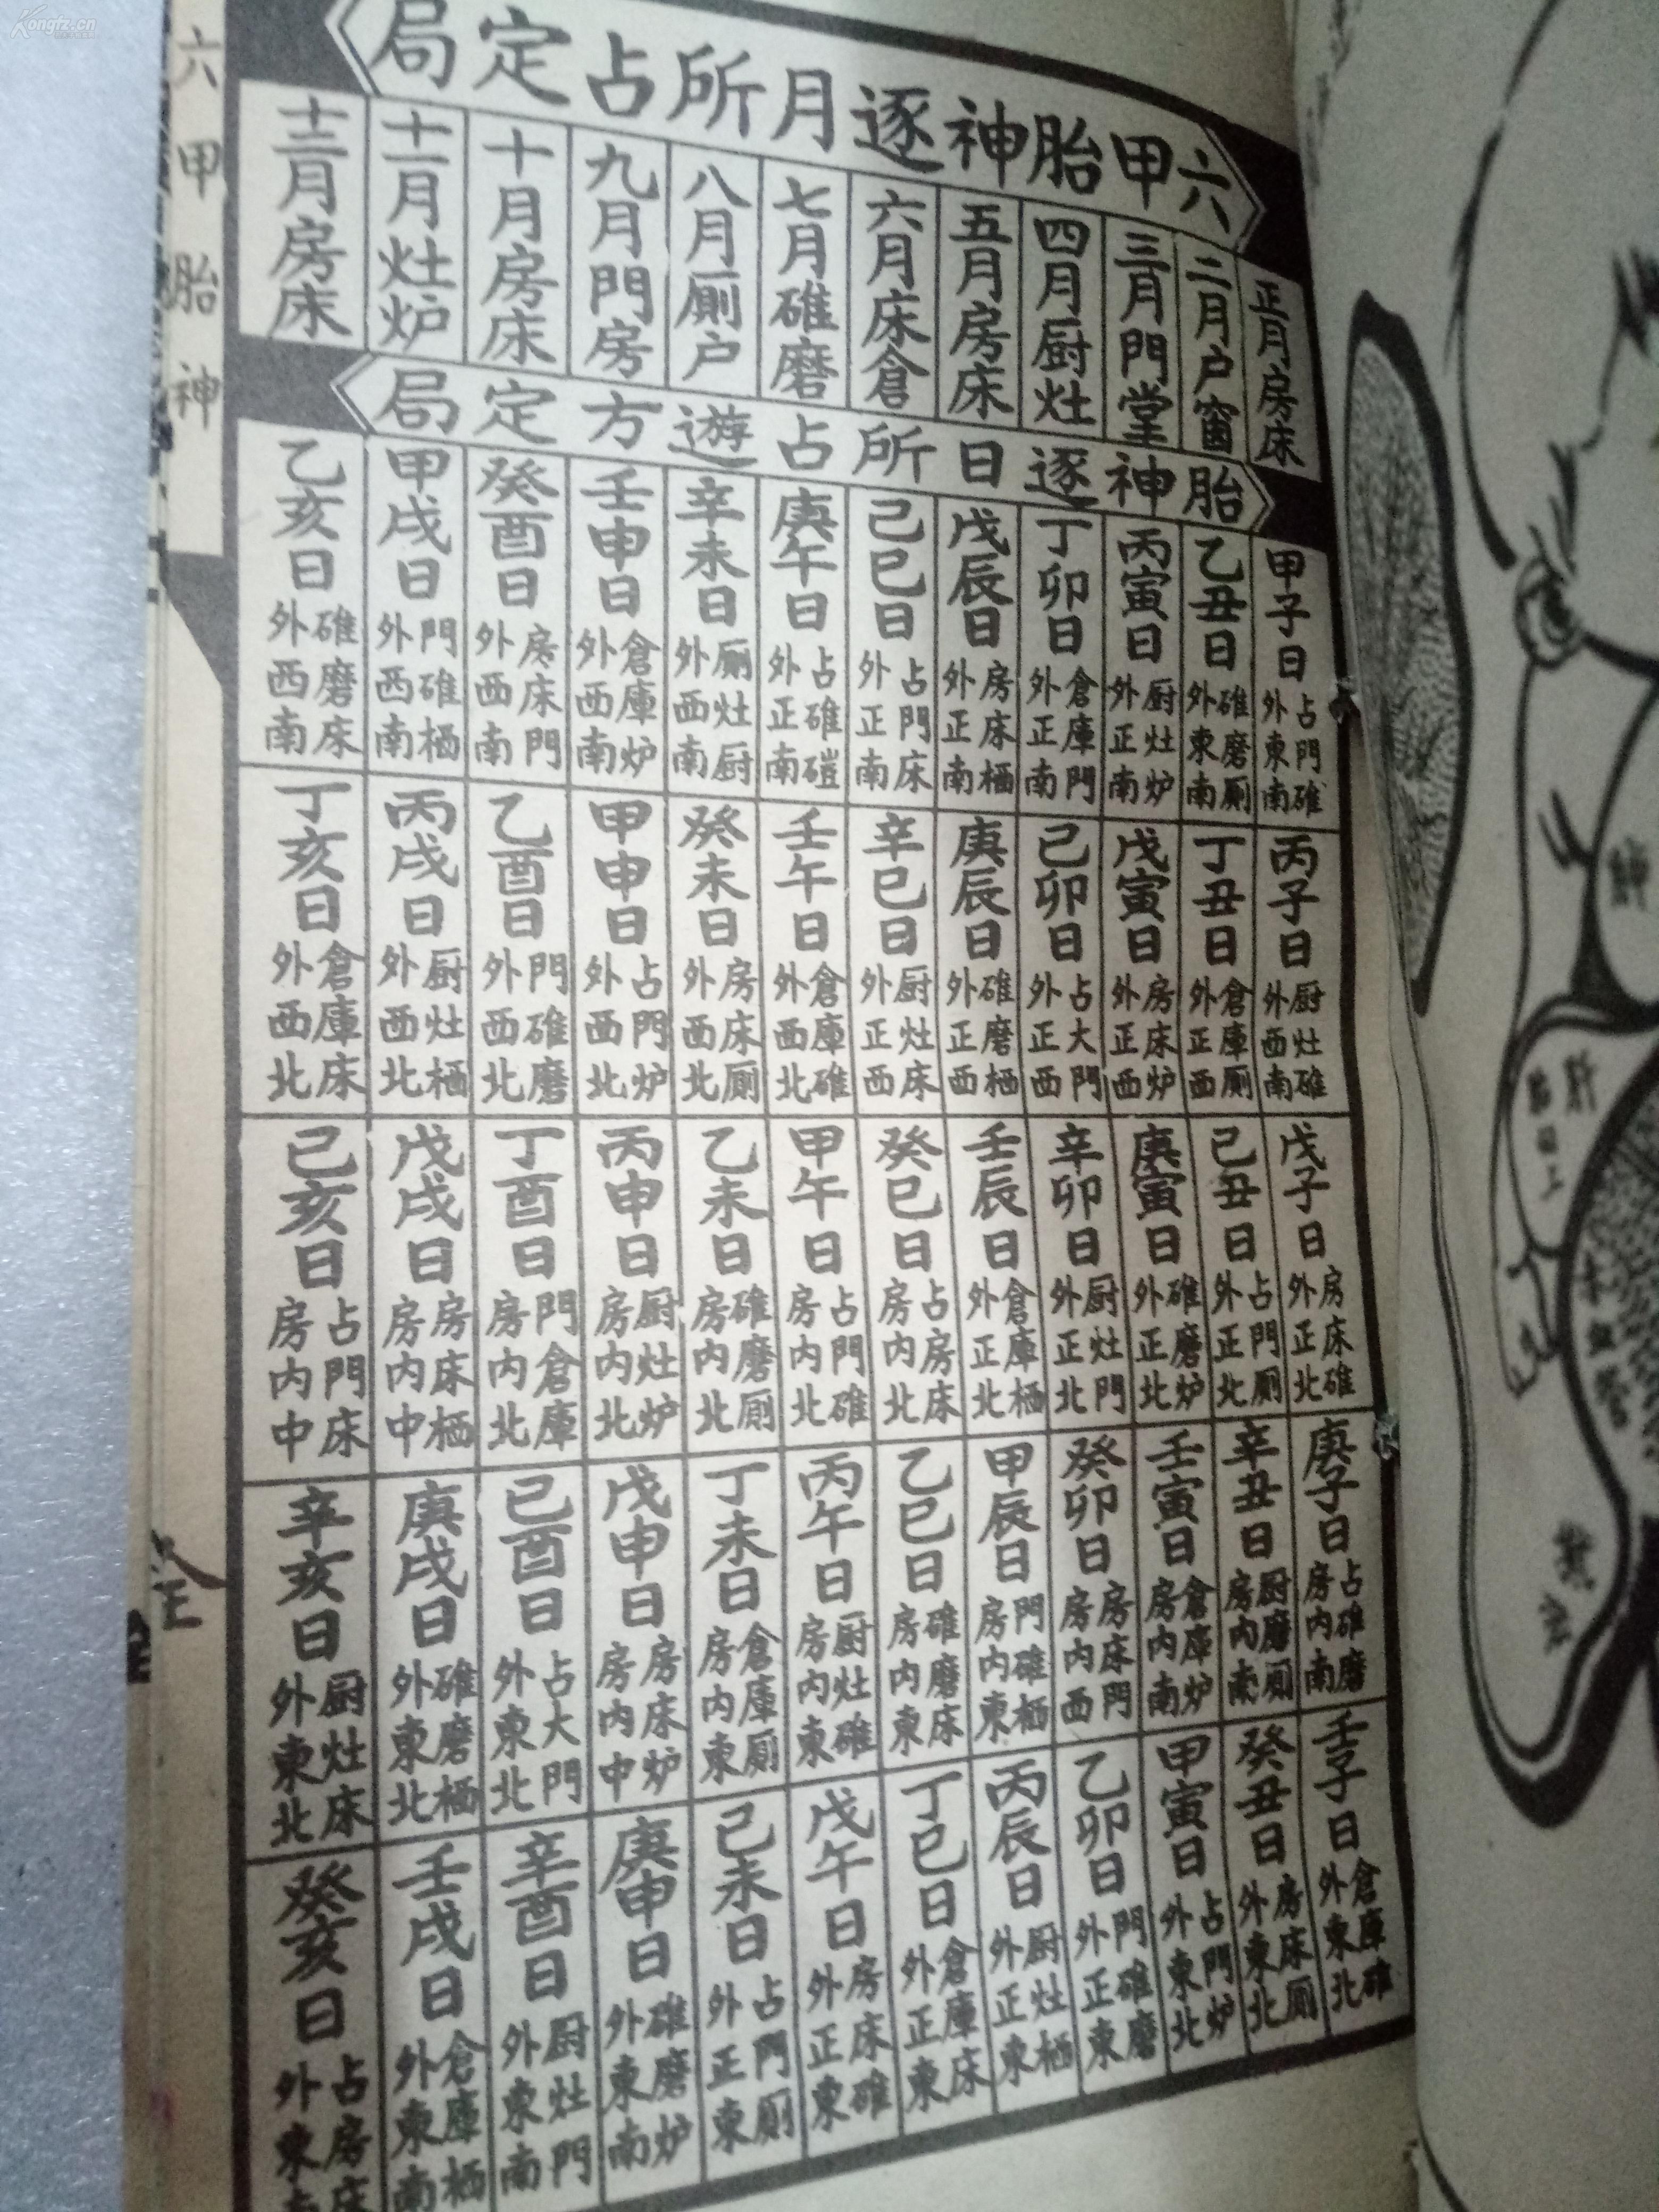 Kongfz.cn
六甲胎神
六甲胎神逐月所占定局
正月房床
二月户窗
三月門堂
四月厨灶
五月房床
六月床倉
七月碓磨
八月厕户
九月門房
十月房床
十一月灶炉
十二月房床
胎神逐日所占遊方定局
甲子日 占門碓 外東南
乙丑日 碓磨厕 外東南
丙寅日 厨灶炉 外正南
丁卯日 倉庫門 外正南
戊辰日 房床栖 外正南
己巳日 占門床 外正南
庚午日 占碓磑 外正南
辛未日 厨灶厕 外西南
壬申日 倉庫炉 外西南
癸酉日 房床門 外西南
甲戌日 門碓栖 外西南
乙亥日 碓磨床 外西南
丙子日 厨灶碓 外西南
丁丑日 倉庫厕 外正西
戊寅日 房床炉 外正西
己卯日 占大門 外正西
庚辰日 碓磨栖 外正西
辛巳日 厨灶床 外正西
壬午日 倉庫碓 外西北
癸未日 房床厕 外西北
甲申日 占門炉 外西北
乙酉日 門碓磨 外西北
丙戌日 厨灶栖 外西北
丁亥日 倉庫床 外西北
戊子日 房床碓 外正北
己丑日 占門厕 外正北
庚寅日 碓磨炉 外正北
辛卯日 厨灶門 外正北
壬辰日 倉庫栖 外正北
癸巳日 占房床 房内北
甲午日 占門碓 房内北
乙未日 碓磨厕 房内北
丙申日 厨灶炉 房内北
丁酉日 門倉庫 房内北
戊戌日 房床栖 房内中
己亥日 占門床 房内中
庚子日 占碓磨 房内南
辛丑日 厨磨厕 房内南
壬寅日 倉庫炉 房内南
癸卯日 房床門 房内西
甲辰日 門碓栖 房内東
乙巳日 碓磨床 房内東
丙午日 厨灶碓 房内東
丁未日 倉庫厕 房内東
戊申日 房床炉 房内中
己酉日 占大門 外東北
庚戌日 碓磨栖 外東北
辛亥日 厨灶床 外東北
壬子日 倉庫碓 外東北
癸丑日 房床厕 外東北
甲寅日 占門炉 外東北
乙卯日 門碓磨 外正東
丙辰日 厨灶栖 外正東
丁巳日 倉庫床 外正東
戊午日 房床碓 外正東
己未日 占門厕 外正東
庚申日 碓磨炉 外東南
辛酉日 厨灶門 外東南
壬戌日 倉庫栖 外東南
癸亥日 占房床 外東南